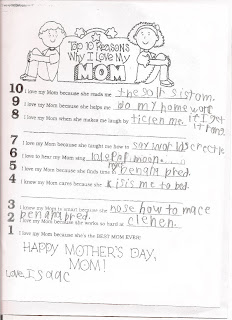 Top 10 Reasons
Why I Love My
MOM
10. I love my Mom because she reads me the solh sistom.
9 I love my Mom because she helps me do my home work
8 I love my Mom when she makes me laugh by ticlen me. if I get
it rong.
7 I love my Mom because she taught me how to say words crectle
6 I love to hear my Mom sing
5 I love my Mom because she finds time
4 I know my Mom cares because she kisis me to bed.
3 I know my Mom is smart because she nose how to mace
penana pred.
2 I love my Mom because she works so hard at clenen.
1 I love my Mom because she's the BEST MOM EVER!
HAPPY MOTHER'S DAY,
MOM!
Love Isaac